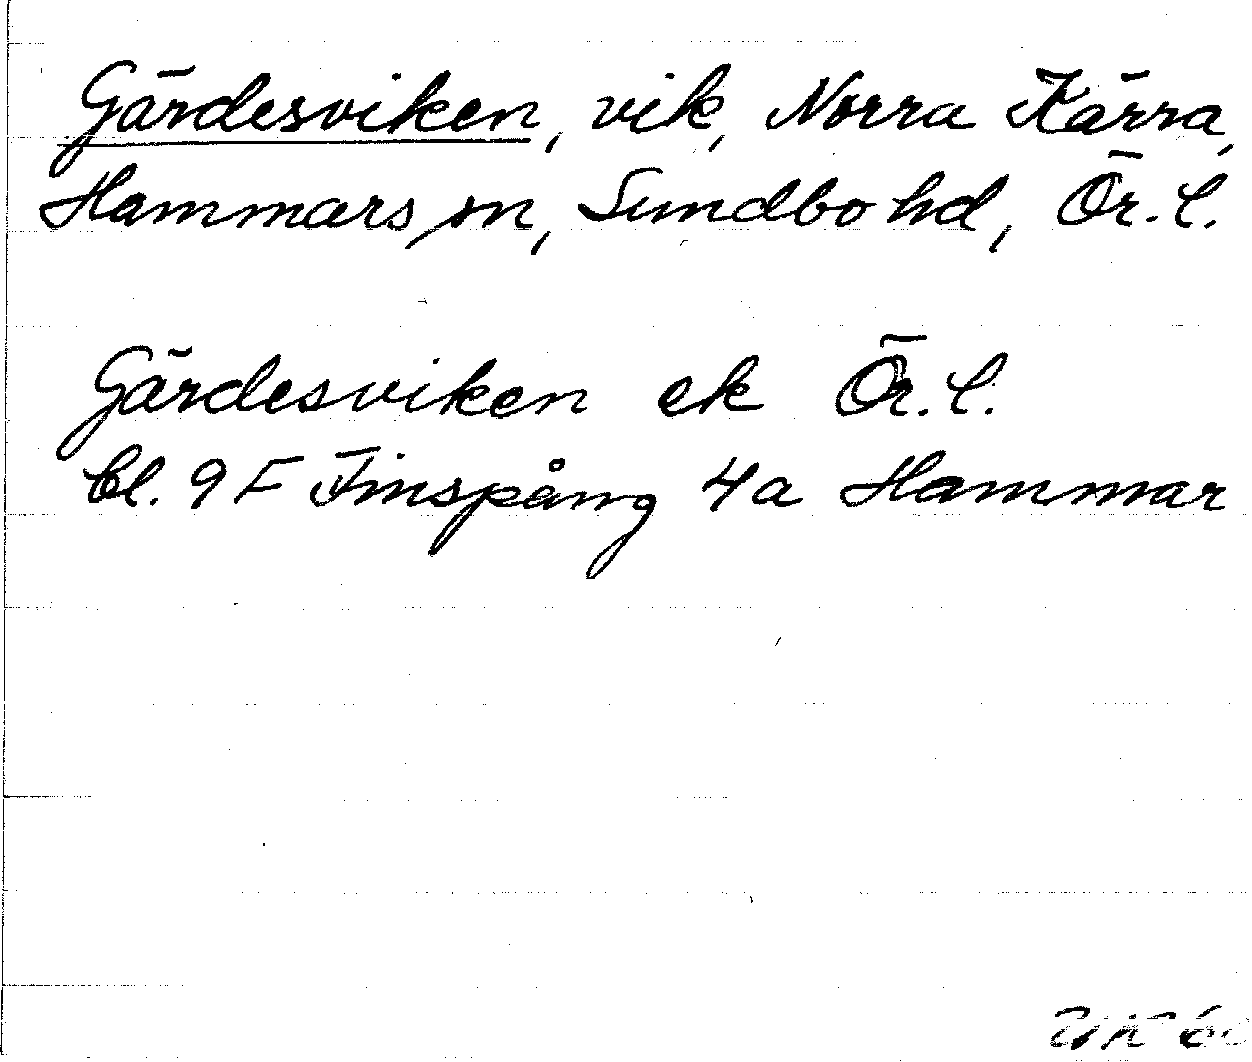 Gärdesviken, vik, Norra Kärra,
Hammars sn, Sundbo hd, Ör. l.
Gärdesviken ek Ör. l.
bl. 9 F Finspång 4a Hammar